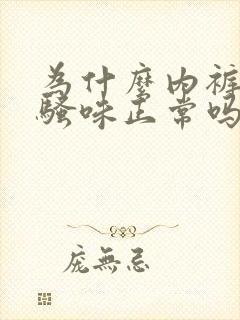 为什麼内裤
骚味正常吗
庞無忌